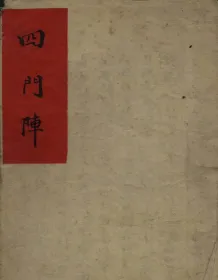 四門陣